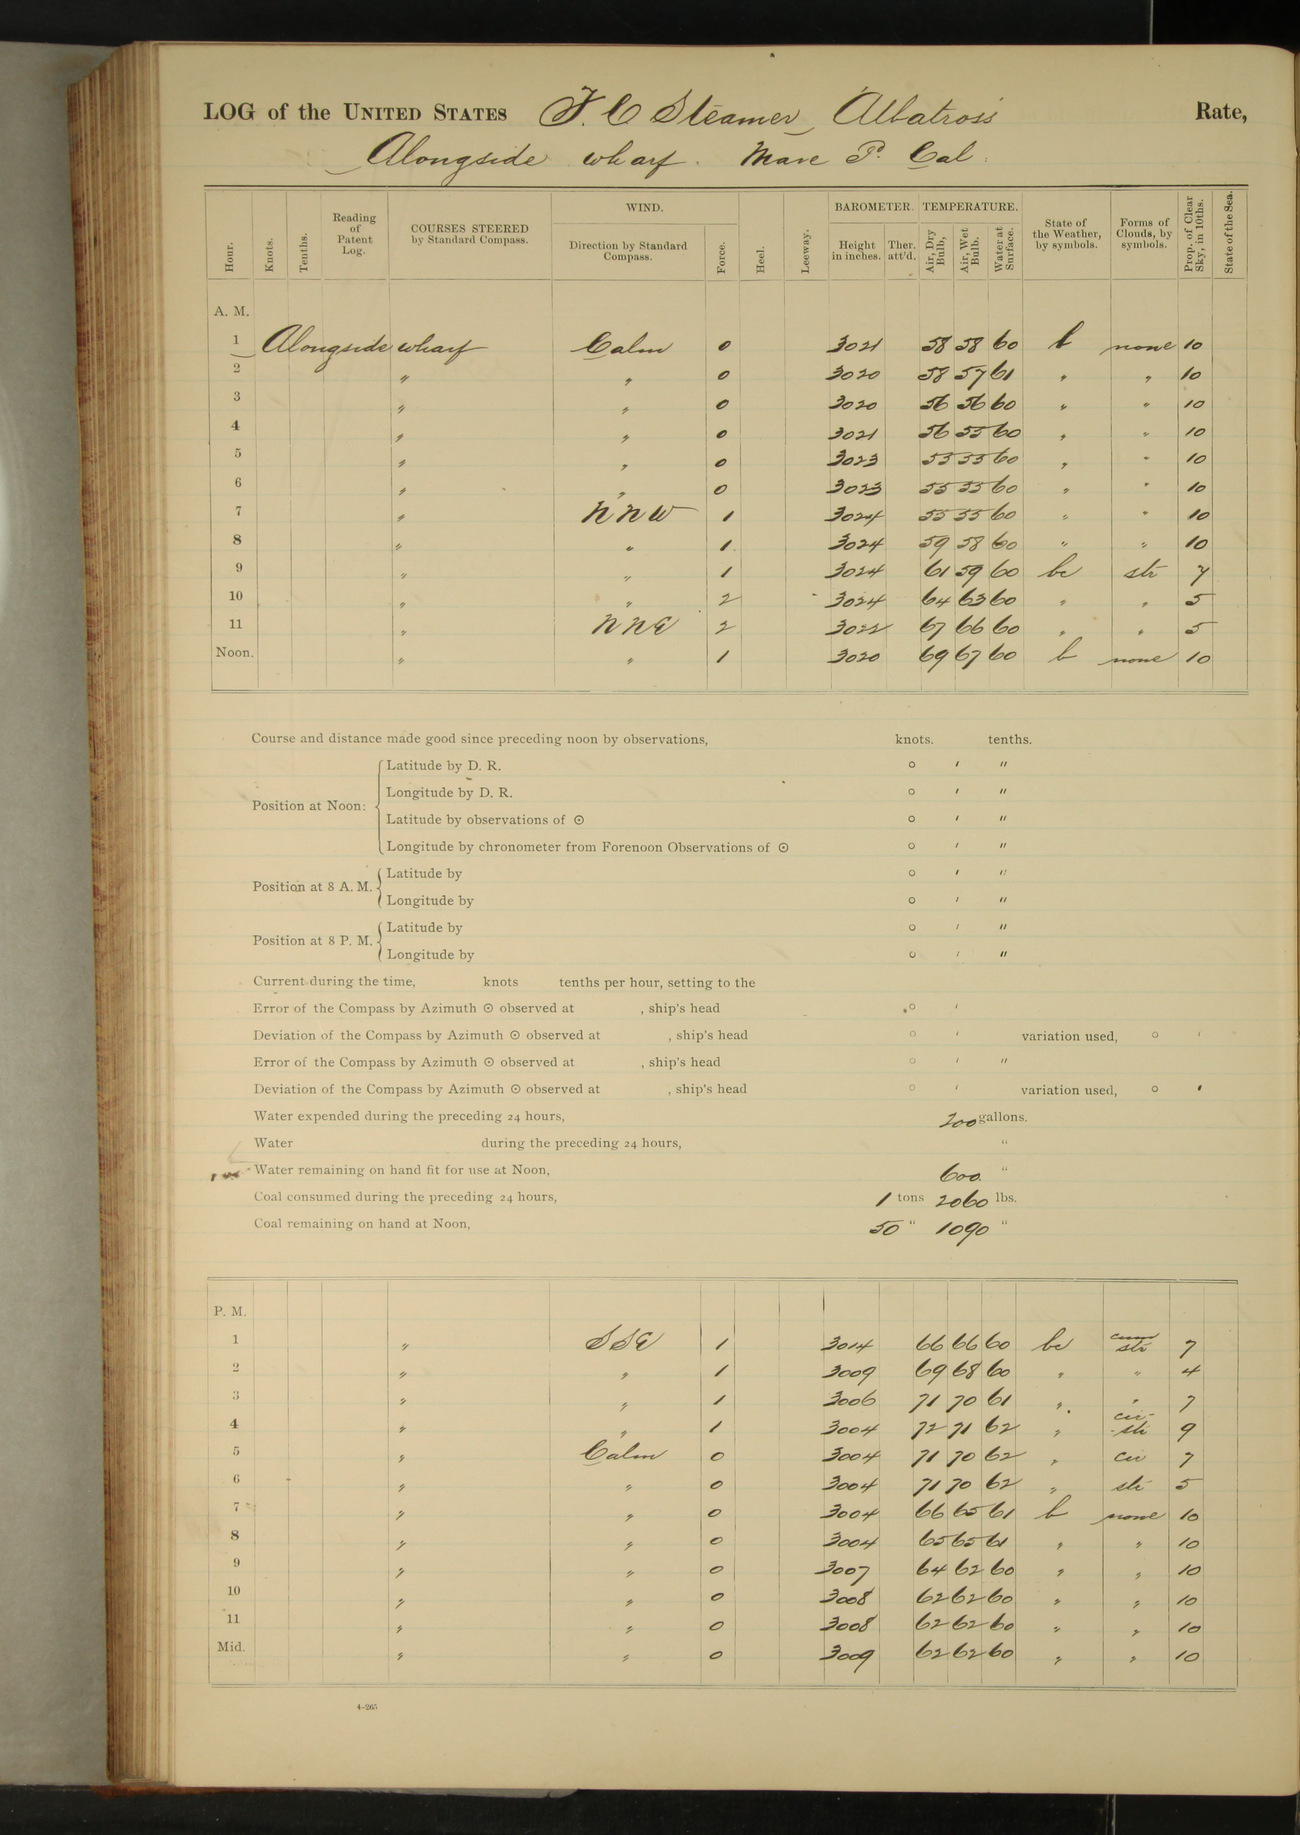 LOG of the UNITED STATES F. C. Steamer Albatross Rate,
Alongside wharf. Mare Id. Cal.
Hour. Knots. Tenths. Reading of Patent Log. COURSES STEERED by Standard Compass. WIND. Direction by Standard Compass. Force. Heel. Leeway. BAROMETER. Height in inches. Ther. att'd. TEMPERATURE. Air, Dry Bulb, Air, Wet Bulb. Water at Surface. State of the Weather, by symbols. Forms of Clouds, by symbols. Prop. of Clear Sky, in 10ths. State of the Sea.
A. M.
1 Alongside wharf Calm 0 3021 58 58 60 b none 10
2 " " 0 3020 58 57 61 " " 10
3 " " 0 3020 56 56 60 " " 10
4 " " 0 3021 56 55 60 " " 10
5 " " 0 3023 55 55 60 " " 10
6 " " 0 3023 55 55 60 " " 10
7 " NNW 1 3024 55 55 60 " " 10
8 " " 1 3024 59 58 60 " " 10
9 " " 1 3024 61 59 60 bc str 7
10 " " 2 3024 64 63 60 " " 5
11 " NNE 2 3022 67 66 60 " " 5
Noon. " " 1 3020 69 67 60 b none 10
Course and distance made good since preceding noon by observations, knots. tenths.
Position at Noon:
Latitude by D. R. ° ′ ″
Longitude by D. R. ° ′ ″
Latitude by observations of ☉ ° ′ ″
Longitude by chronometer from Forenoon Observations of ☉ ° ′ ″
Position at 8 A. M.
Latitude by ° ′ ″
Longitude by ° ′ ″
Position at 8 P. M.
Latitude by ° ′ ″
Longitude by ° ′ ″
Current during the time, knots tenths per hour, setting to the
Error of the Compass by Azimuth ☉ observed at , ship's head ° ′
Deviation of the Compass by Azimuth ☉ observed at , ship's head ° ′ variation used, ° ′
Error of the Compass by Azimuth ☉ observed at , ship's head ° ′ ″
Deviation of the Compass by Azimuth ☉ observed at , ship's head ° ′ variation used, ° ′
Water expended during the preceding 24 hours, 200 gallons.
Water during the preceding 24 hours, "
Water remaining on hand fit for use at Noon, 600 "
Coal consumed during the preceding 24 hours, 1 tons 2060 lbs.
Coal remaining on hand at Noon, 50 " 1090 "
P. M.
1 " SSE 1 3014 66 66 60 bc cum str 7
2 " " 1 3009 69 68 60 " " 4
3 " " 1 3006 71 70 61 " " 7
4 " " 1 3004 72 71 62 " cir-str 9
5 " Calm 0 3004 71 70 62 " cir 7
6 " " 0 3004 71 70 62 " str 5
7 " " 0 3004 66 65 61 b none 10
8 " " 0 3004 65 65 61 " " 10
9 " " 0 3007 64 62 60 " " 10
10 " " 0 3008 62 62 60 " " 10
11 " " 0 3008 62 62 60 " " 10
Mid. " " 0 3009 62 62 60 " " 10
4-265